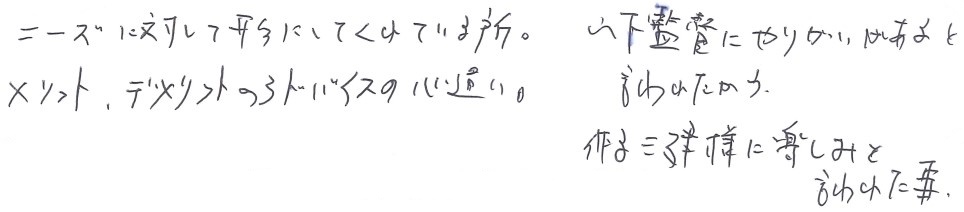 ニーズに対して にしてくれている所。
メリット、デメリットのアドバイスの心遣い。
山下監督にやりがいがあると
言われたから.
様に楽しみと
言われた事.